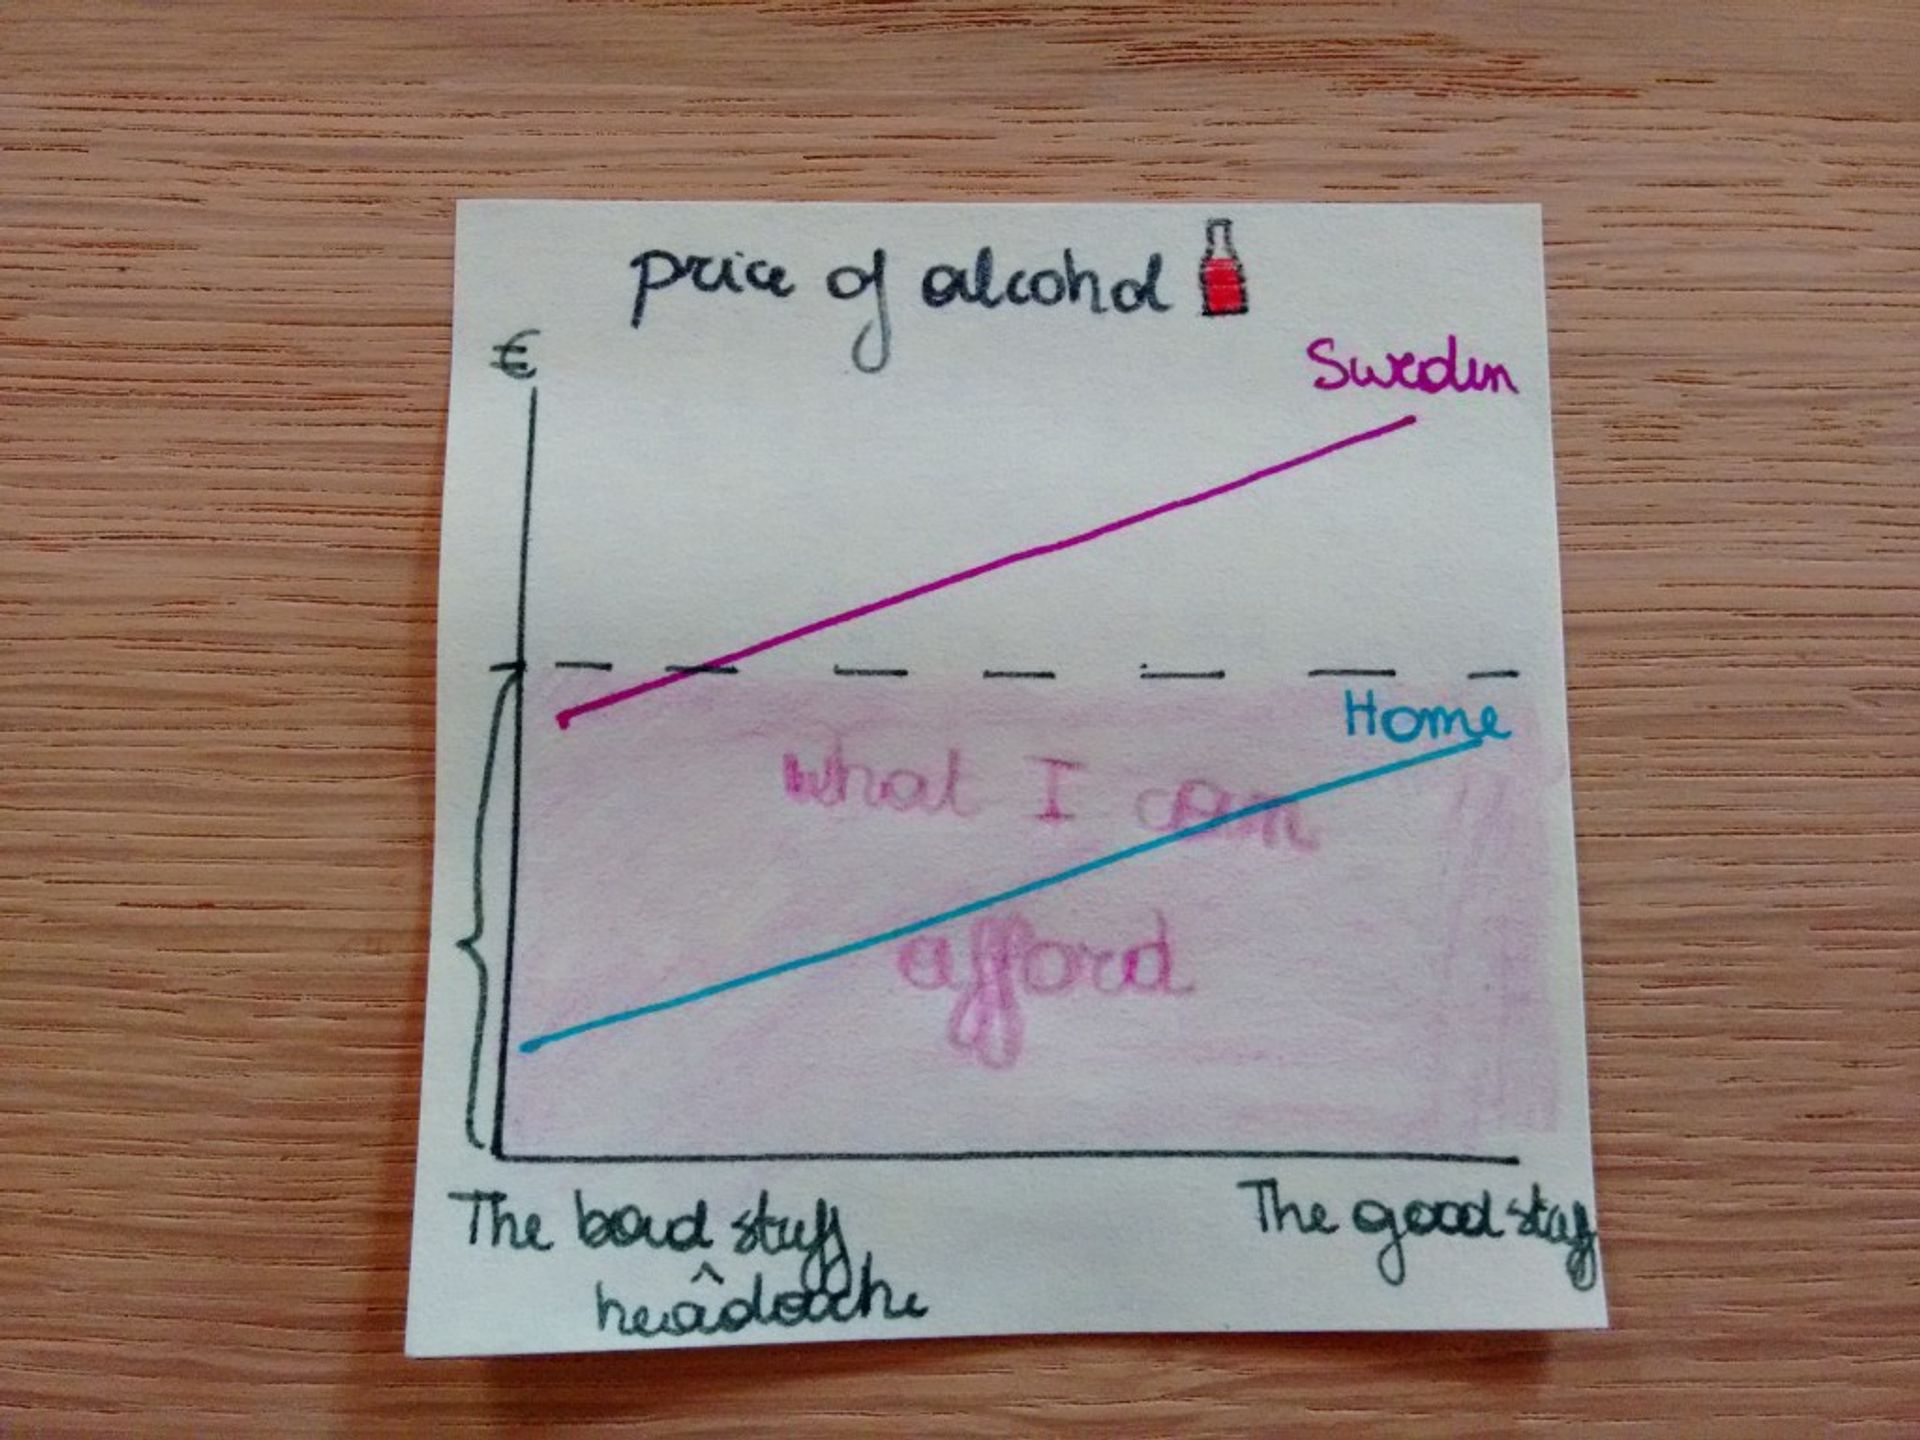 price of alcohol
€
Sweden
Home
what I can
afford
The bad stuff
The good stuff
headache